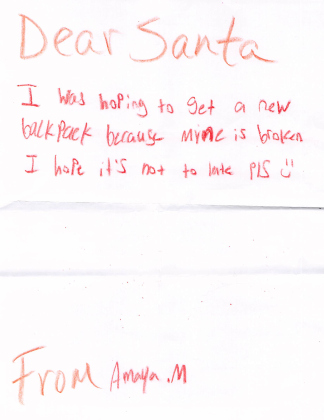 Dear Santa
I was hoping to get a new
backpack because mine is broken
I hope it's not to late pls ü
From Amaya .M